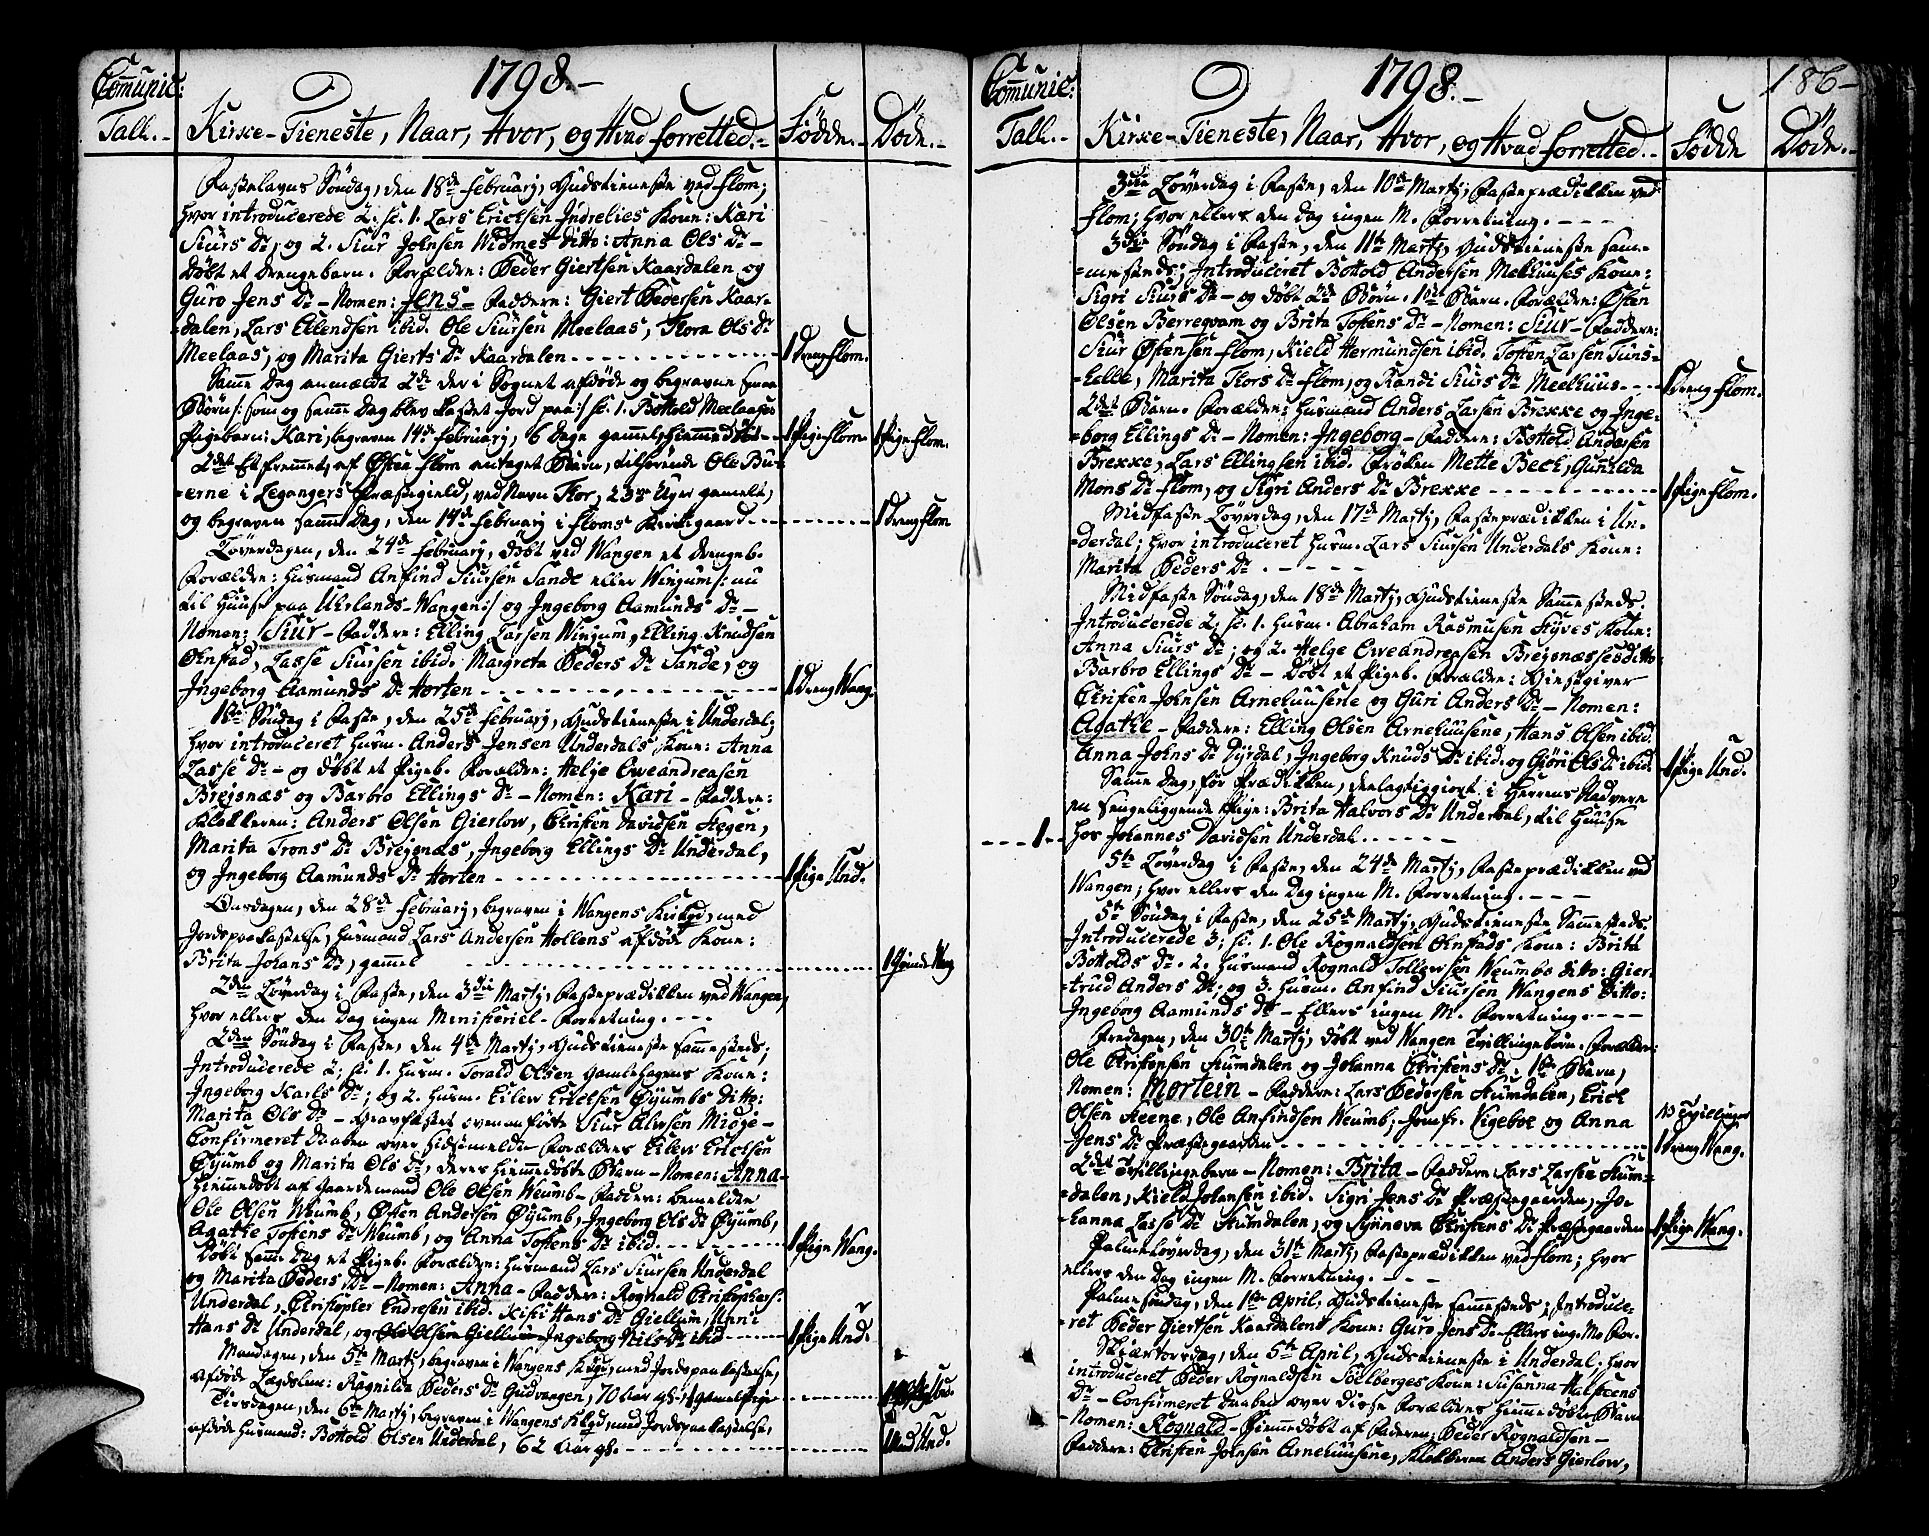 Comunic: 1798.-
Tall.- Kirke-Tieneste, Naar, Hvor, og Hvad forretted.- Födde.- Döde.-
Fastelavns Söndag, den 18de Februarj, Gudstieneste ved Flom;
hvor introducerede 2; sc. 1. Lars Erichsen Indrelies Kone: Kari
Siurs Dr, og 2. Siur Johnsen Widmes ditto: Anna Ols Dr-
Döbt et Drengebarn. Forældre: Peder Giertsen Kaardalen og
Guro Jens Dr - Nomen: Jens - Faddere: Giert Pedersen Kaar-
-dalen, Lars Ellendsen ibid. Ole Siursen Meelaas, Flora Ols Dr
Meelaas, og Marita Gierts Dr Kaardalen - - - 1 Dreng Flom.
Samme Dag anmældt 2de der i Sognet afdöde og begravne smaae
Börn/: som og samme Dag blev kastet Jord paa:/ sc. 1. Bottold Meelaases
Pigebarn: Kari, begraven 14de Februarj, 6 Dage gammel, hiemmedöbt - 1 Pige Flom. 1 Pige Flom.
2det Et fremmet, af Östen Flom antaget Barn, tilhörende Ole Bu-
-erne i Leganger Præstegield, ved Navn Thor, 23 Uger gammelt,
og begraven samme Dag, den 14de Februarj i Floms Kirkegaard - - - 1 Dreng Flom
Löverdagen, den 24de Februarj, döbt ved Wangen et Drengeb.
Forældre: Husmand Anfind Siursen Sande eller Winjum/: nu
til Huuse paa Uhrlands-Wangen:/ og Ingeborg Aamunds Dr-
Nomen: Siur - Faddere: Elling Larsen Winjum, Elling Knudsen
Ohnstad, Lasse Siursen ibid. Margreta Peders Dr Sande, og
Ingeborg Aamunds Dr Horten - - - 1 Dreng Wang.
1ste Söndag i Faste, den 25de Februarj, Gudstieneste i Underdal;
hvor introduceret Husm. Anders Jensen Underdals Kone: Anna
Lasse Dr - og döbt et Pigeb. Forældre: Helje Eweandreasen
Brejsnæs og Barbro Ellings Dr - Nomen: Kari - Faddere:
Klokkeren: Anders Olsen Gierlow, Christen Davidsen Stegen,
Marita Trons Dr Brejsnæs, Ingeborg Ellings Dr Underdal,
og Ingeborg Aamunds Dr Horten - - - 1 Pige Und.
Onsdagen, den 28de Februarj, begraven i Wangens Kirkgd, med
Jordspaakastelse, Husmand Lars Andersen Hollens afdöde Kone:
Brita Johans Dr, gammel - - - 1 Qvinde Wang
2den Löverdag i Faste, den 3die Martj, Fasteprædikken ved Wangen,
hvor ellers den Dag ingen Ministeriel-Forretning. - - -
2den Söndag i Faste, den 4de Martj, Gudstieneste sammesteds;
Introducerede 2; sc. 1. Husm. Torald Olsen Gamlehagens Kone:
Ingeborg Karls Dr; og 2. Husm. Eilew Erichsen Öyumbs Ditto:
Marita Ols Dr - Gravfæstet ovenanförte Siur Alvsen Midje -
Confirmeret Daaben over hidhörende Forældres Eilew Erichsen
Öyumb og Marita Ols Dr, deres hiemmedöbte Barn - Nomen: Anna-
hiemmedöbt af Gaardemand Ole Olsen Weumb - Faddere: bemeldte
Ole Olsen Weumb, Östen Andersen Öyumb, Ingeborg Ols Dr Öyumb,
Agathe Tostens Dr Weumb, og Anna Tostens Dr ibid. - - - 1 Pige Wang.
Döbt samme Dag et Pigeb. Forældre: Husmand Lars Siursen Underdal
og Marita Peders Dr - Nomen: Anna - Faddere: Rognald Christophers:
Underdal, Christopher Endresen ibid. Kisti Hans Dr Giellum, Unni
Hans Dr Underdal, og Ole Olsen Giellum Ingeborg Nils Dr ibid - - - 1 Pige Und.
Mandagen, den 5te Martj, begraven i Wangens Kkgd, med Jordspaakastelse,
afdöde Lægdslem: Ragnilda Peders Dr Gudvangen, 70 Aar
Tirsdagen, den 6te Martj, begraven i Wangens Kkgd, med Jordspaakastelse,
afdöde Husmand: Bottold Olsen Underdal, 62 Aar gl. - - - 1 Und.
Comunic: 1798.- 186-
Tall.- Kirke-Tieneste, Naar, Hvor, og Hvad forretted.- Födde Döde.-
3die Löverdag i Faste, den 10de Martj, Fasteprædikken ved
Flom; hvor ellers den Dag ingen M. Forretning. - - -
3die Söndag i Faste, den 11te Martj, Gudstieneste sam-
-mesteds; Introduceret Bottold Andersen Melhuuses Kone:
Sigri Siurs Dr - og döbt 2de Börn. 1ste Barn. Forældre: Östen
Olsen Berreqvam og Brita Tostens Dr - Nomen: Siur - Faddere:
Siur Östensen Flom, Kield Hermundsen ibid. Tosten Larsen Tuns-
-helle, Marita Thors Dr Flom, og Randi Siurs Dr Meelhuus - - - 1 Dreng Flom.
2det Barn. Forældre: Husmand Anders Larsen Brekke og Inge-
-borg Ellings Dr - Nomen: Ingeborg - Faddere: Bottold Andersen
Brekke, Lars Ellingsen ibid. Fröken Mette Bech, Gunilda
Mons Dr Flom, og Sigri Anders Dr Brekke - - - 1 Pige Flom.
Midfaste Löverdag, den 17de Martj, Fasteprædikken i Un-
-derdal; hvor introduceret Husm. Lars Siursen Underdals Kone:
Marita Peders Dr - - -
Midfaste Söndag, den 18de Martj, Gudstieneste Sammesteds.
Introducerede 2; sc. 1. Husm. Abraham Rasmusen Styves Kone:
Anna Siurs Dr; og 2. Helge Eweandreasen Brejsnæsses ditto:
Barbro Ellings Dr - Döbt et Pigeb. Forældre: Giestgiver
Christen Johnsen Arnehuusene og Guri Anders Dr - Nomen:
Agathe - Faddere: Elling Olsen Arnehuusene, Hans Olsen ibid.
Anna Johns Dr Dyrdal, Ingeborg Knuds Dr ibid. og Giöri Ols Dr ibid. 1 Pige Und.
Samme Dag, för Prædikken, deelagtiggiort i Herrens Nadvere
en sengeliggende Pige: Brita Halvors Dr Underdal, til Huuse
- - - 1 - - hos Johannes Davidsen Underdal - - -
5te Löverdag i Faste, den 24de Martj, Fasteprædikken ved
Wangen; hvor ellers den Dag ingen M. Forretning. - - -
5te Söndag i Faste, den 25de Martj, Gudstieneste Sammesteds.
Introducerede 3; sc. 1. Ole Rognaldsen Ohnstads Kone: Brita
Bottolds Dr. 2. Husmand Rognald Tollewsen Weumbs ditto: Gier-
-trud Anders Dr; og 3. Husm. Anfind Siursen Wangens Ditto:
Ingeborg Aamunds Dr - Ellers ingen M. Forretning. - - -
Fredagen, den 30te Martj, döbt ved Wangen Tvillingebörn. Forældre:
Ole Christensen Skumdalen og Johanna Christens Dr. 1ste Barn,
Nomen: Mortein - Faddere: Lars Pedersen Skumdalen, Erich
Olsen Steene, Ole Anfindsen Weumb, Jomfr. Vigeboe og Anna 
Tvillinger
Jens Dr Præstegaarden - - - 1 Dreng Wang.
2det Tvillingebarn - Nomen: Brita - Faddere: Lars Larsen Skum-
-dalen, Kield Johansen ibid. Sigri Jens Dr Præstegaarden, Jo-
-hanna Lasse Dr Skumdalen, og Synneva Christens Dr Præstegaarden 1 Pige Wang.
Palmelöverdag, den 31te Martj, Fasteprædikken ved Flom; hvor
ellers den Dag ingen M. Forretning. - - -
Palmesöndag, den 1ste April, Gudstieneste sammesteds; Introduce-
-ret Peder Giertsen Kaardalens Kone: Guro Jens Dr Ellers ing. M. For.
Skiærtorsdag, den 5te April, Gudstieneste i Underdal; hvor
introduceret Peder Rognaldsen Solbergs Kone: Susanna Halsteens
Dr - Confirmeret Daaben over disse Forældres hiemmedöbte Barn
-Nomen: Rognald - Hiemmedöbt af Faderen: Peder Rognaldsen -
Faddere: Christen Johnsen Arnehuusene, Klokkeren Anders Gierlow,